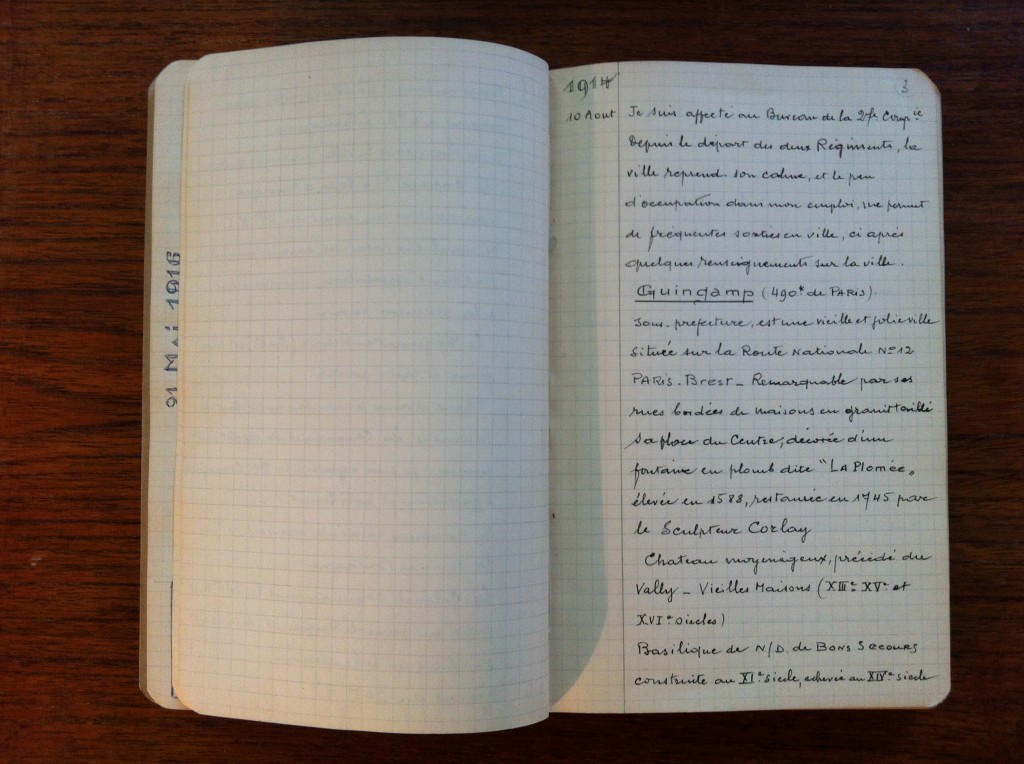 91 Mai 1916
1914
3
10 Aout
Je suis affecté au Bureau de la 27e Compie
Depuis le départ des deux Régiments, la
ville reprend son calme, et le peu
d'occupation dans mon emploi, me permet
de fréquentes sorties en ville, ci après
quelques renseignements sur la ville.
Guingamp (490k de PARIS).
Sous-préfecture, est une vieille et jolie ville
Située sur la Route Nationale No 12
PARIS-Brest _ Remarquable par ses
rues bordées de maisons en granit taillé
Sa place du Centre, décorée d'une
fontaine en plomb dite "LA Plomée"
élevée en 1588, restaurée en 1745 par
le Sculpteur Corlay
Chateau moyenâgeux, précédé du
Vally _ Vieilles Maisons (XIIIe XVe et
XVIe siècles)
Basilique de N/D. de BONS SECOURS
construite au XIe siecle, achevée au XIVe siecle